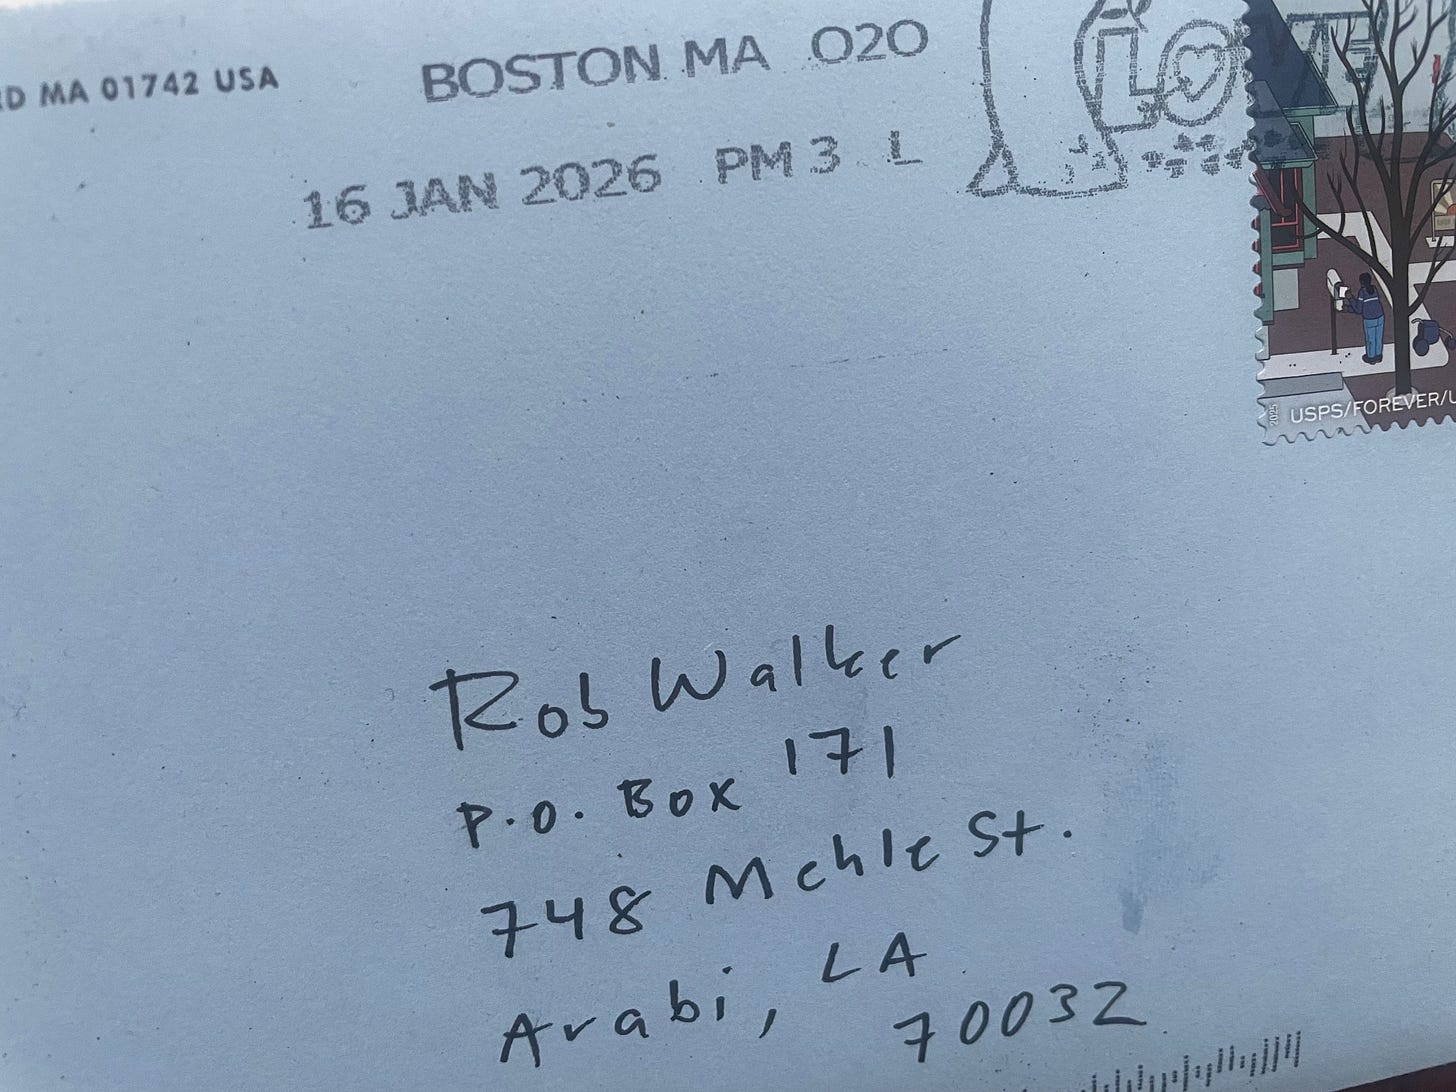 MA 01742 USA
BOSTON MA 020
16 JAN 2026 PM 3 L
LOVE
2025
USPS/FOREVER/
Rob Walker
P.O. Box 171
748 Mehle St.
Arabi, LA
70032